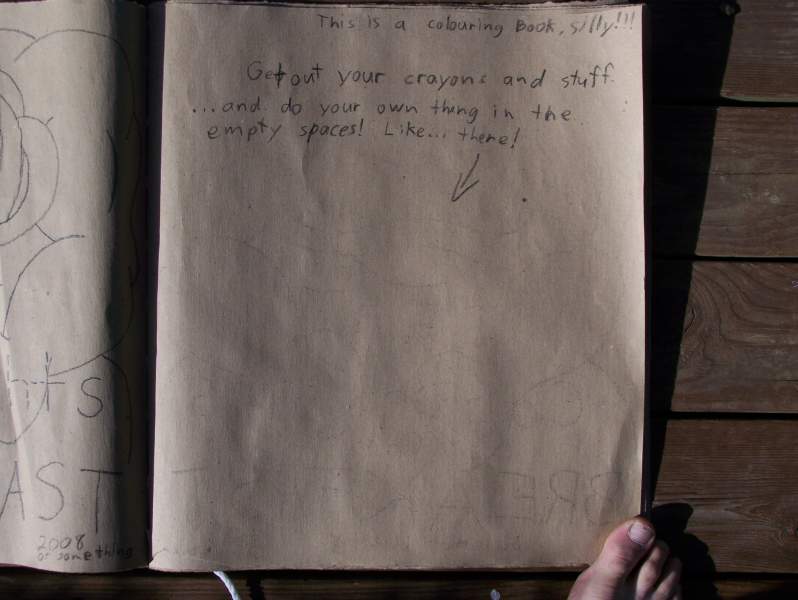 This is a colouring Book, silly!!!
Get out your crayons and stuff
...and do your own thing in the
empty spaces! Like... there!
s
AST
2008
or something